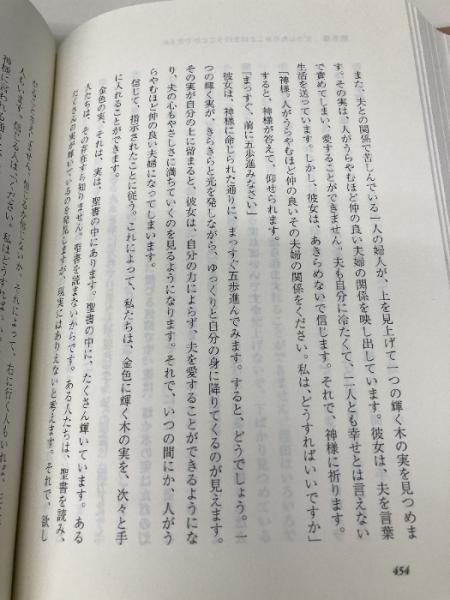 また、夫との関係で苦しんでいる一人の婦人が、上を見上げて一つの輝く木の実を見つめま
す。その実は、人がうらやむほど仲の良い夫婦の関係を映し出しています。彼女は、夫を言葉
で責めてしまい、愛することができません。夫も自分に冷たくて、二人とも幸せとは言えない
生活を送っています。しかし、彼女は、あきらめないで信じます。それで、神様に祈ります。
「神様。人がうらやむほど仲の良いその夫婦の関係をください。私は、どうすればいいですか」
すると、神様が答えて、仰せられます。
「まっすぐ、前に五歩進みなさい」
彼女は、神様に命じられた通りに、まっすぐ五歩進んでみます。すると、どうでしょう。一
つの輝く実が、きらきらと光を発しながら、ゆっくりと自分の身に降りてくるのが見えます。
その実が自分の上に留まると、彼女は、自分の力によらず、夫を愛することができるようにな
り、夫の心もやさしさに満ちていくのを見るようになります。それで、いつの間にか、人がう
らやむほど仲の良い夫婦になってしまいます。
信じて、指示されたことに従う。これによって、私たちは、金色に輝く木の実を、次々と手
に入れることができます。
金色の実。それは、実は、聖書の中にあります。聖書の中に、たくさん輝いています。ある
人たちは、その存在すら知りません。聖書を読まないからです。ある人たちは、聖書を読み、
たくさんの実が輝いているのを発見しますが、現実にはありえないと考えます。それで、欲し
454